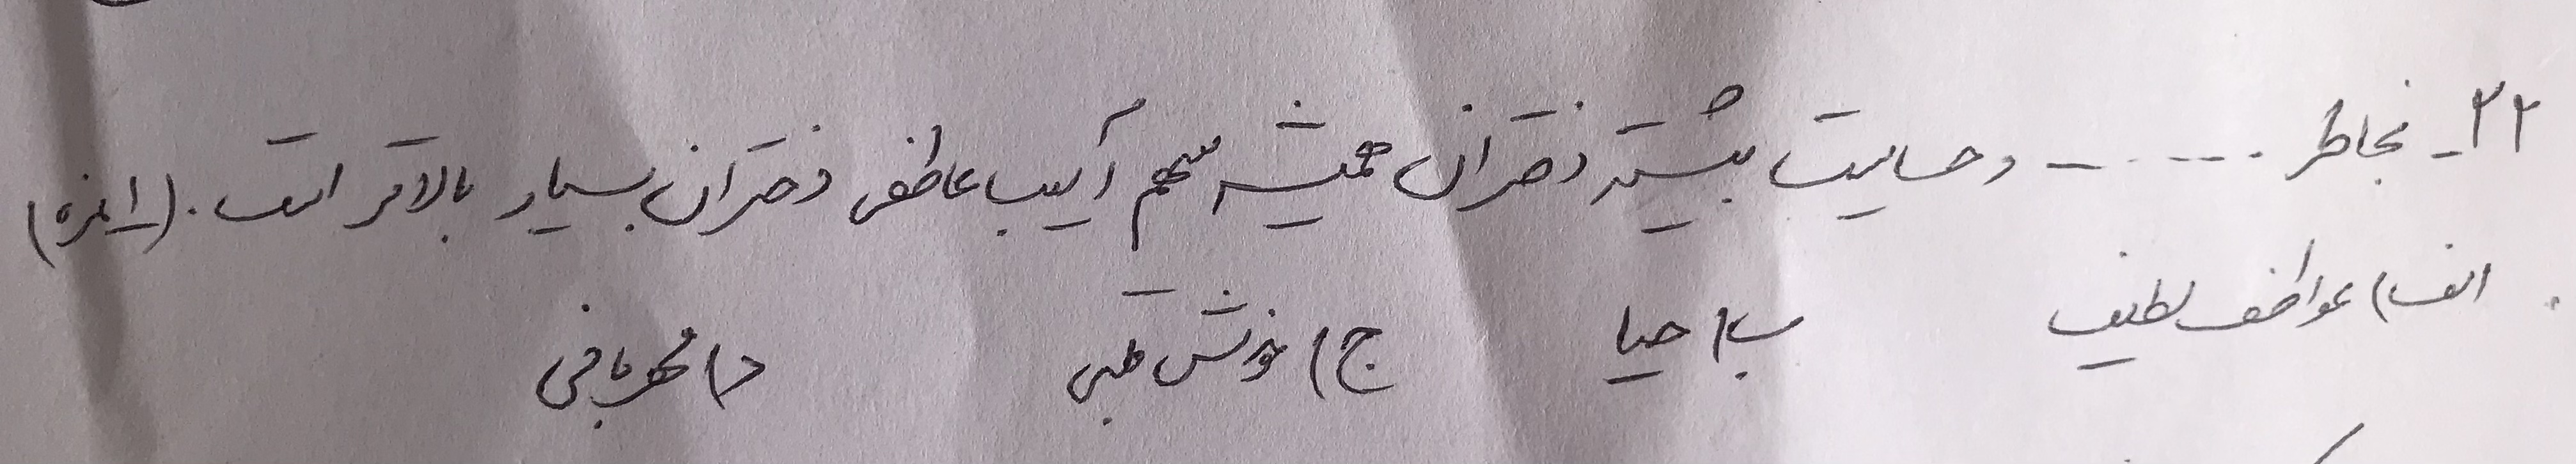 ۲۲- بخاطر ........ و حساسیت بیشتر دختران همیشه سهم آسیب عاطفی دختران بسیار بالاتر است. (۱ نمره)
الف) عواطف لطیف ب) حیا ج) خوش قلبی د) مهربانی